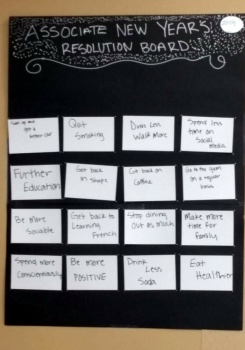 ASSOCIATE NEW YEARS'
RESOLUTION BOARD
Quit
Smoking
Drive Less
Walk More
Spend less
time on
Social
Media
Further
Education
Get back
in shape
Cut back on
Caffeine
Go to the gym
on a regular
basis
Be more
Sociable
Get back to
Learning
French
Stop dining
Out as much
Make more
time for
family
Spend more
Conscientiously
Be more
POSITIVE
Drink
Less
Soda
Eat
Healthier